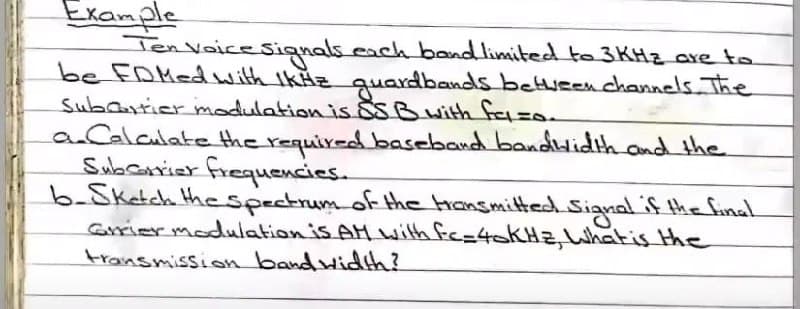 Example
Ten voice signals each bandlimited to 3KHz are to
be FDMed with 1KHz guardbands between channels. The
Subcarrier modulation is SSB with fc1=0.
a-Calculate the required baseband bandwidth and the
Subcarrier frequencies.
b-Sketch the spectrum of the transmitted signal if the final
Carrier modulation is AM with fc=40KHz, What is the
transmission bandwidth?